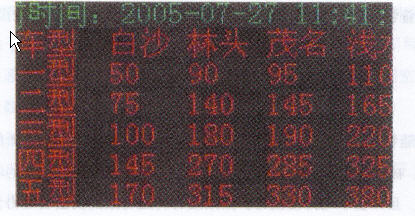 时间: 2005-07-27 11:41:
车型 白沙 林头 茂名 浅水
一型 50 90 95 110
二型 75 140 145 165
三型 100 180 190 220
四型 145 270 285 325
五型 170 315 330 380